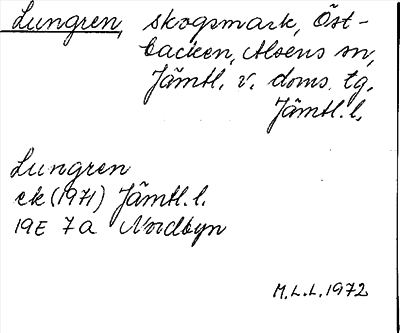 Lungren, skogsmark, Öst-
backen, Alsens sn,
Jämtl. v. doms. tg.
Jämtl. l.
Lungren
ek (1971) Jämtl. l.
19E 7a Nordbyn
M.L.L. 1972